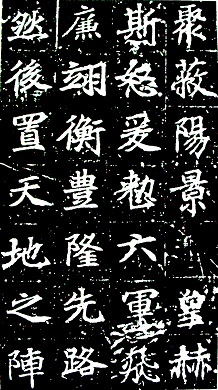 聚蔽陽景 皇赫
斯怒爰勑六軍飛
廉翊衡豊隆先路
然後置天地之陣